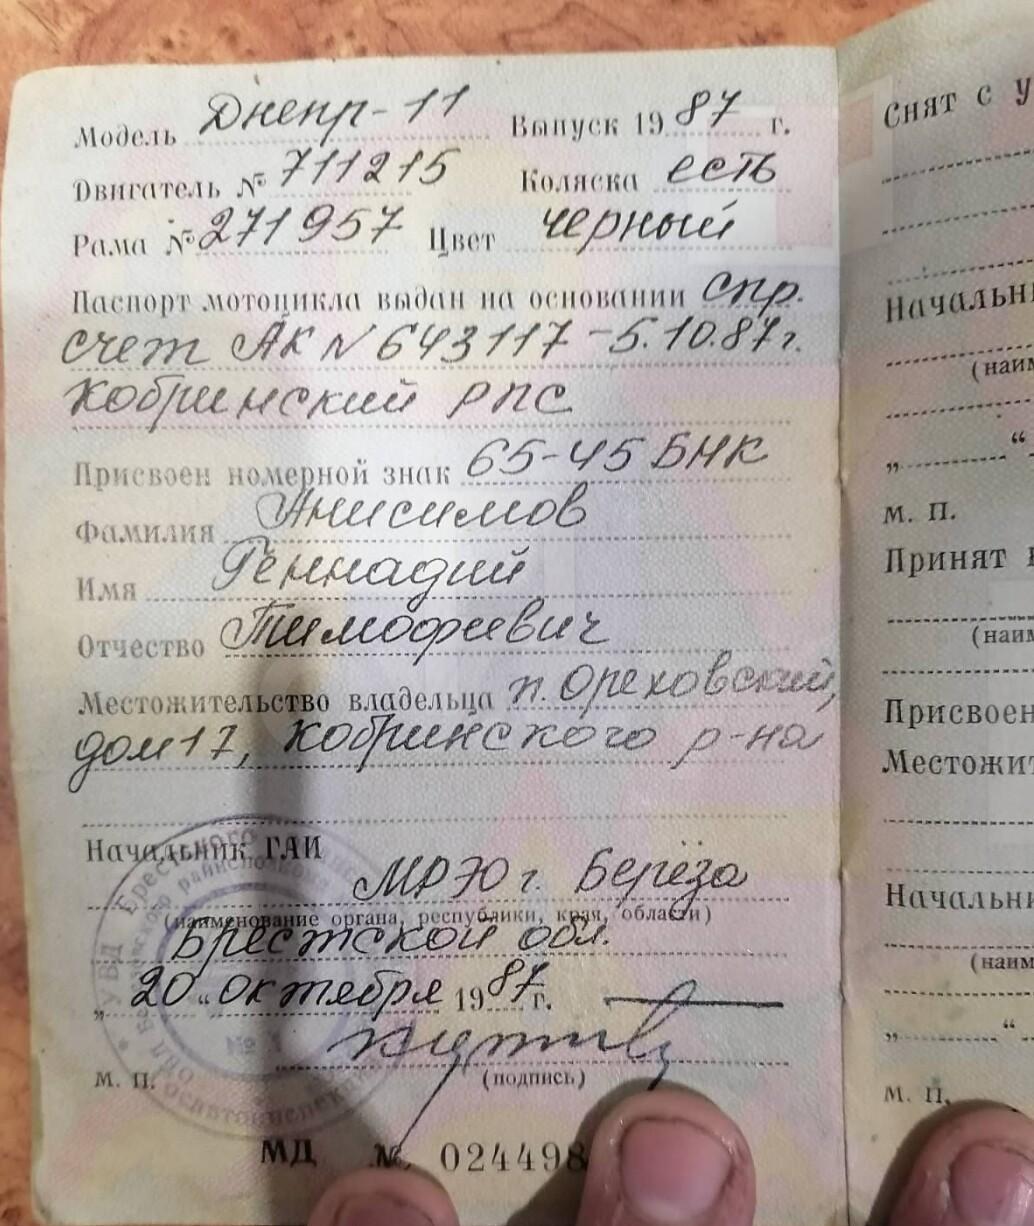 Модель Днепр-11 Выпуск 19 87 г.
Двигатель № 711215 Коляска есть
Рама № 271957 Цвет черный
Паспорт мотоцикла выдан на основании спр.
счет АК № 643117 - 5.10.87г.
Кобринский РПС
Присвоен номерной знак 65-45 БНК
Фамилия Анисимов
Имя Геннадий
Отчество Тимофеевич
Местожительство владельца п. Ореховский,
дом 17, Кобринского р-на
Начальник ГАИ
МРЭО г. Берёза
(наименование органа, республики, края, области)
Брестской обл.
„ 20 “ октября 19 87 г.
(подпись)
М. П.
МД № 024498
Снят с у
Начальни
(наим
„ “
М. П.
Принят
(наим
Присвоен
Местожит
Начальни
(наим
„ “
М. П.